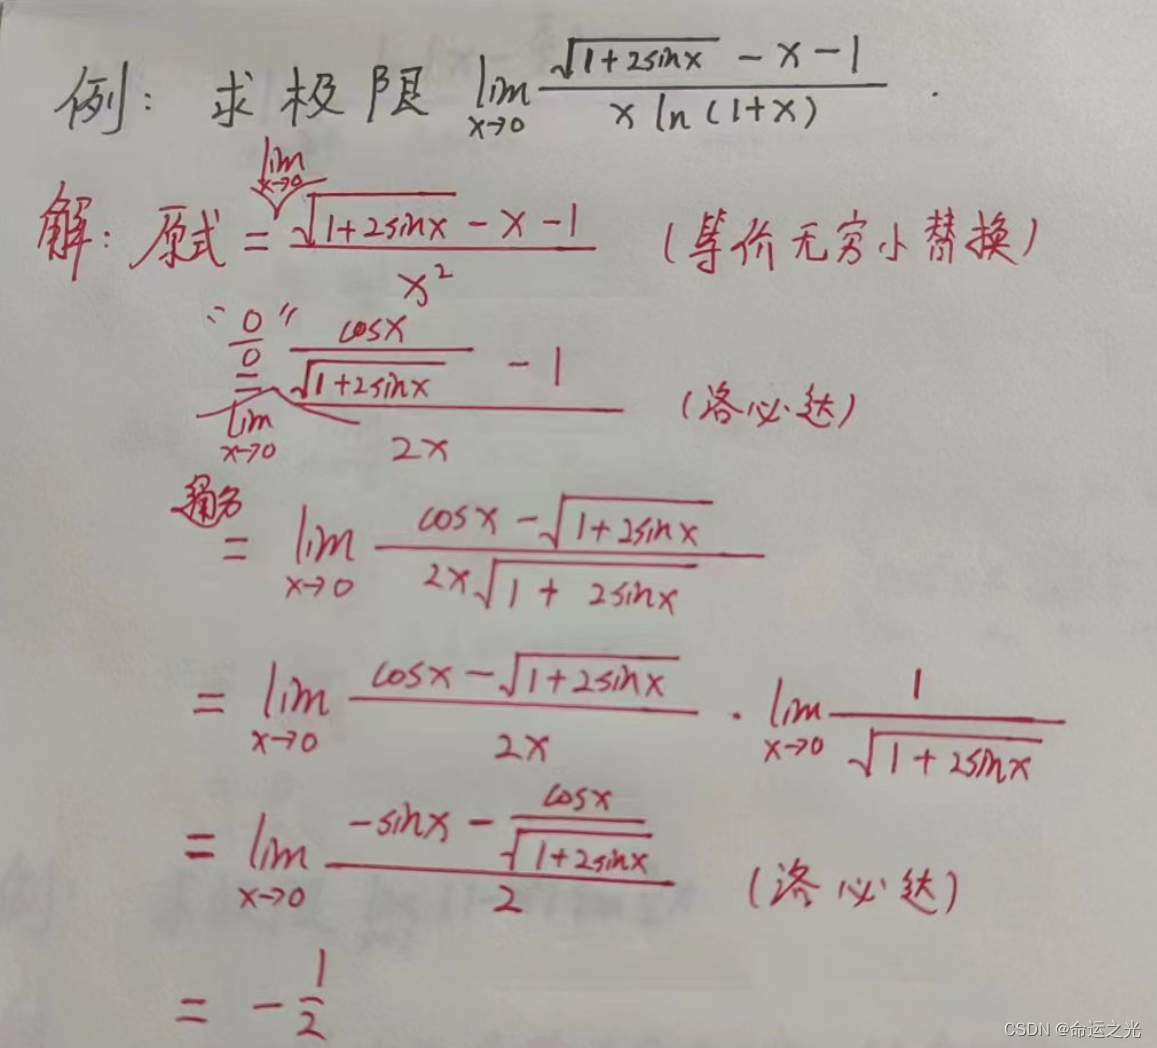 例: 求极限 lim x→0 (√(1+2sinx) - x - 1)/(x ln(1+x)) .
解: 原式 = lim x→0 (√(1+2sinx) - x - 1)/x² (等价无穷小替换)
"0/0" = lim x→0 (cosx/√(1+2sinx) - 1)/2x (洛必达)
通分 = lim x→0 (cosx - √(1+2sinx))/(2x√(1+2sinx))
= lim x→0 (cosx - √(1+2sinx))/2x · lim x→0 1/√(1+2sinx)
= lim x→0 (-sinx - cosx/√(1+2sinx))/2 (洛必达)
= -1/2
CSDN @命运之光